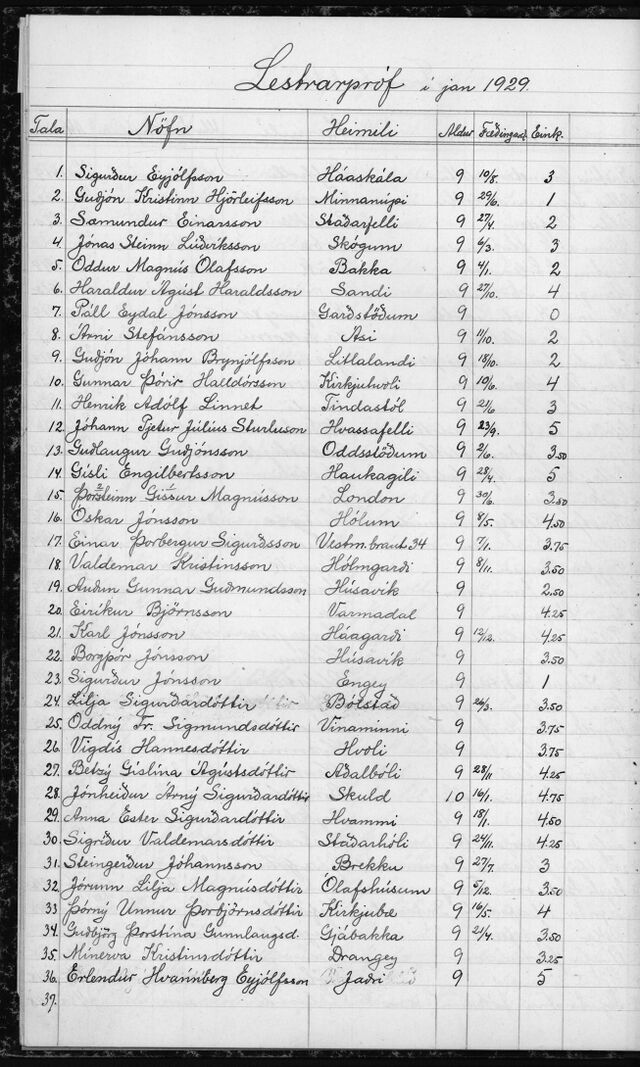 Lestrarpróf í jan 1929.
Tala Nöfn Heimili Aldur Fæðingard. Eink.
1. Sigurður Eyjólfsson Háaskála 9 10/8. 3
2. Guðjón Kristinn Hjörleifsson Minnanúpi 9 29/6. 1
3. Sæmundur Einarsson Staðarfelli 9 27/4. 2
4. Jónas Steinn Lúðvíksson Skógum 9 6/3. 3
5. Oddur Magnús Ólafsson Bakka 9 4/1. 2
6. Haraldur Ágúst Haraldsson Sandi 9 27/10. 4
7. Páll Eydal Jónsson Garðstöðum 9 0
8. Árni Stefánsson Ási 9 11/10. 2
9. Guðjón Jóhann Brynjólfsson Litlalandi 9 18/10. 2
10. Gunnar Þórir Halldórsson Kirkjuhvoli 9 10/6. 4
11. Henrik Adólf Linnet Tindastól 9 21/6. 3
12. Jóhann Pjetur Júlíus Sturluson Hvassafelli 9 23/9. 5
13. Guðlaugur Guðjónsson Oddsstöðum 9 2/6. 3.50
14. Gísli Engilbertsson Haukagili 9 28/4. 5
15. Þorsteinn Gissur Magnússon London 9 30/6. 3.50
16. Óskar Jónsson Hólum 9 8/5. 4.50
17. Einar Þorbergur Sigurðsson Vestm.braut.34 9 7/1. 3.75
18. Valdemar Kristinsson Hólmgarði 9 8/11. 3.50
19. Auðun Gunnar Guðmundsson Húsavík 9 2.50
20. Eiríkur Björnsson Varmadal 9 4.25
21. Karl Jónsson Háagarði 9 12/12. 4.25
22. Borgþór Jónsson Húsavík 9 3.50
23. Sigurður Jónsson Engey 9 1
24. Lilja Sigurðardóttir Bólstað 9 26/3. 3.50
25. Oddný Fr. Sigmundsdóttir Vinaminni 9 3.75
26. Vigdís Hannesdóttir Hvoli 9 3.75
27. Betzý Gíslína Ágústsdóttir Aðalbóli 9 28/11 4.25
28. Jónheiður Árný Sigurðardóttir Skuld 10 16/1. 4.75
29. Anna Ester Sigurðardóttir Hvammi 9 18/1. 4.50
30. Sigríður Valdemarsdóttir Staðarhóli 9 24/11. 4.25
31. Steingerður Jóhannsson Brekku 9 27/7. 3
32. Jórunn Lilja Magnúsdóttir Ólafshúsum 9 5/12. 3.50
33 Þórný Unnur Þorbjörnsdóttir Kirkjubæ 9 16/5. 4
34. Guðbjörg Þorstína Gunnlaugsd. Gjábakka 9 21/4. 3.50
35. Minerva Kristinsdóttir Drangey 9 3.25
36. Erlendur Hvannberg Eyjólfsson Jaðri 9 5
37.